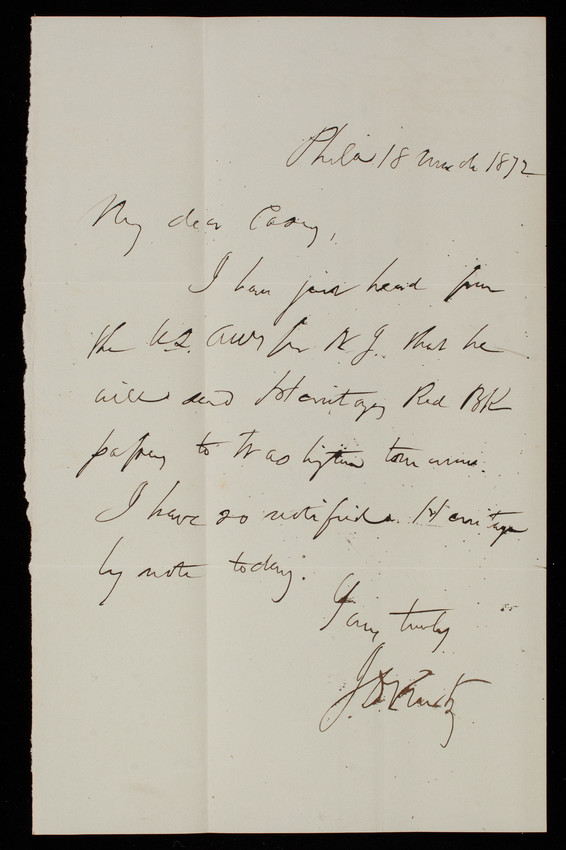 Phila 18 March 1872
My dear Casey,
I have just heard from
the U.S. Atty for N J. that he
will send Heritages Red BK
papers to Washington tomorrow.
I have so notified Heritage
by note today.
Yours truly
J D Kurtz